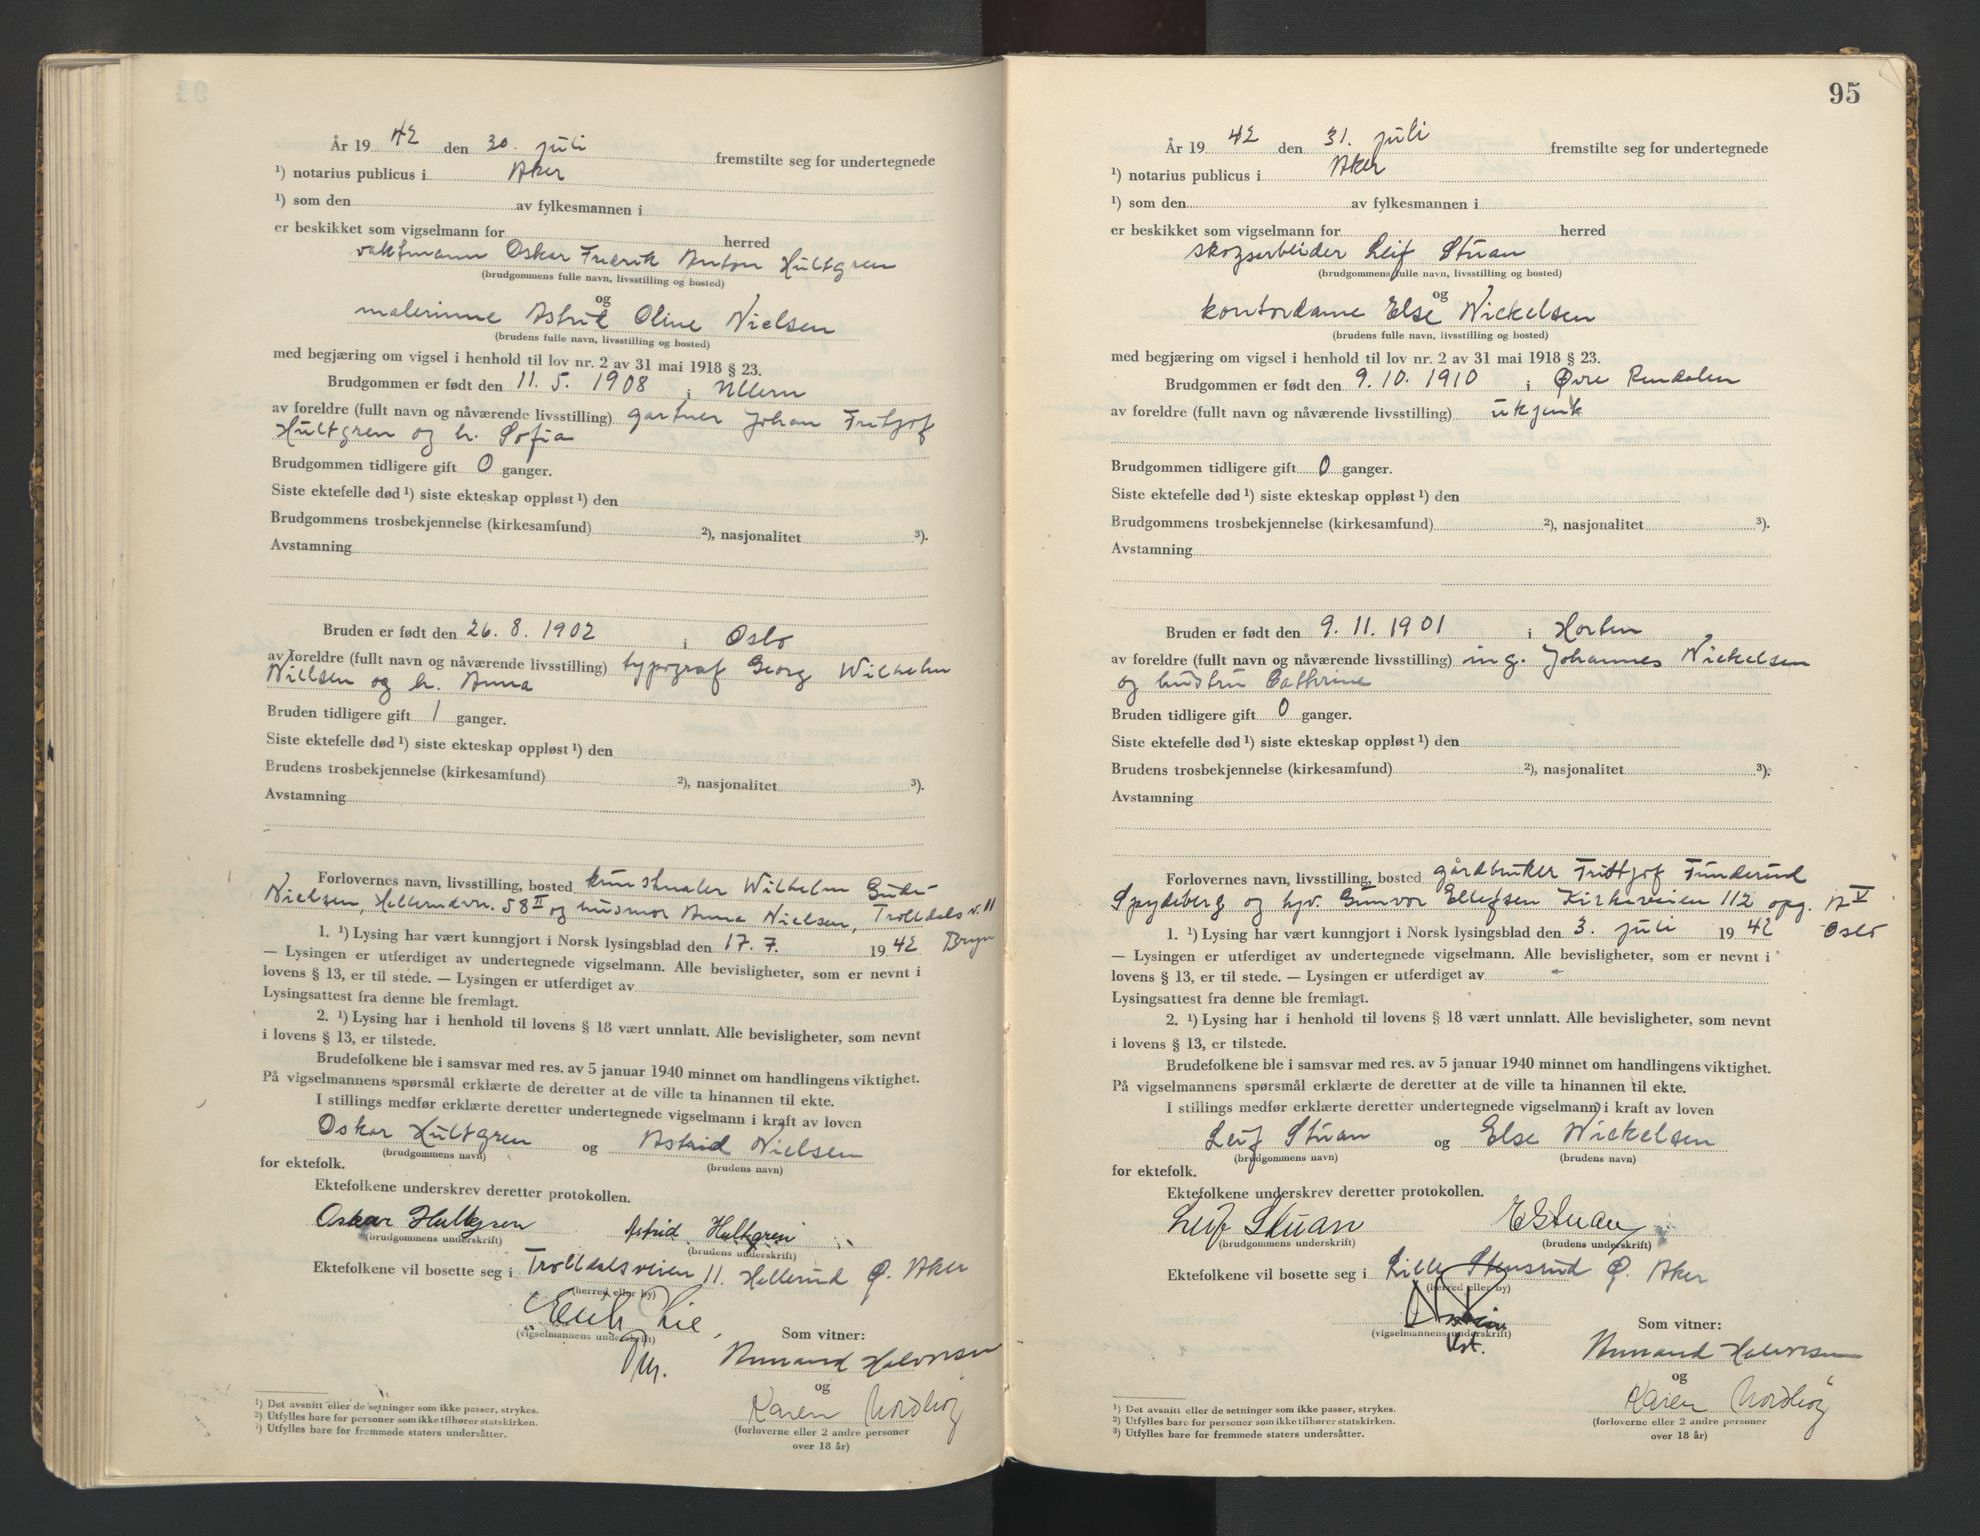 År 19 42 den 30. juli fremstilte seg for undertegnede
¹) notarius publicus i Aker
¹) som den av fylkesmannen i
er beskikket som vigselmann for herred
vaktmann Oskar Fredrik Anton Hultgren
(brudgommens fulle navn, livsstilling og bosted)
og
malerinne Astrid Oline Nielsen
(brudens fulle navn, livsstilling og bosted)
med begjæring om vigsel i henhold til lov nr. 2 av 31 mai 1918 § 23.
Brudgommen er født den 11. 5. 1908 i Ullern
av foreldre (fullt navn og nåværende livsstilling) gartner Johan Fritjof
Hultgren og h. Sofia
Brudgommen tidligere gift 0 ganger.
Siste ektefelle død ¹) siste ekteskap oppløst ¹) den
Brudgommens trosbekjennelse (kirkesamfund) ²), nasjonalitet ³).
Avstamning
Bruden er født den 26. 8. 1902 i Oslo
av foreldre (fullt navn og nåværende livsstilling) typograf Georg Wilhelm
Nielsen og h. Anna
Bruden tidligere gift 1 ganger.
Siste ektefelle død ¹) siste ekteskap oppløst ¹) den
Brudens trosbekjennelse (kirkesamfund) ²), nasjonalitet ³).
Avstamning
Forlovernes navn, livsstilling, bosted kunstmaler Wilhelm Gude
Nielsen, 58 II og husmor Anna Nielsen, Trolldalsv. 11
1. ¹) Lysing har vært kunngjort i Norsk lysingsblad den 17. 7. 1942 Bryn
— Lysingen er utferdiget av undertegnede vigselmann. Alle bevisligheter, som er nevnt i
lovens § 13, er til stede. — Lysingen er utferdiget av
Lysingsattest fra denne ble fremlagt.
2. ¹) Lysing har i henhold til lovens § 18 vært unnlatt. Alle bevisligheter, som nevnt
i lovens § 13, er tilstede.
Brudefolkene ble i samsvar med res. av 5 januar 1940 minnet om handlingens viktighet.
På vigselmannens spørsmål erklærte de deretter at de ville ta hinannen til ekte.
I stillings medfør erklærte deretter undertegnede vigselmann i kraft av loven
Oskar Hultgren og Astrid Nielsen
(brudgommens navn) (brudens navn)
for ektefolk.
Ektefolkene underskrev deretter protokollen.
Oskar Hultgren Astrid Hultgren
(brudgommens underskrift) (brudens underskrift)
Ektefolkene vil bosette seg i Trolldalsveien 11. Hellerud Ø. Aker
(herred eller by)
(vigselmannens underskrift)
Som vitner:
Amand Halvorsen
og
Karen Nordhøy
(forloverne eller 2 andre personer
over 18 år)
¹) Det avsnitt eller de setninger som ikke passer, strykes.
²) Utfylles bare for personer som ikke tilhører statskirken.
³) Utfylles bare for fremmede staters undersåtter.
95
År 19 42 den 31. juli fremstilte seg for undertegnede
¹) notarius publicus i Aker
¹) som den av fylkesmannen i
er beskikket som vigselmann for herred
skogsarbeider Leif Stuan
(brudgommens fulle navn, livsstilling og bosted)
og
kontordame Else Nickelsen
(brudens fulle navn, livsstilling og bosted)
med begjæring om vigsel i henhold til lov nr. 2 av 31 mai 1918 § 23.
Brudgommen er født den 9. 10. 1910 i Øvre Rendalen
av foreldre (fullt navn og nåværende livsstilling) ukjent
Brudgommen tidligere gift 0 ganger.
Siste ektefelle død ¹) siste ekteskap oppløst ¹) den
Brudgommens trosbekjennelse (kirkesamfund) ²), nasjonalitet ³).
Avstamning
Bruden er født den 9. 11. 1901 i Horten
av foreldre (fullt navn og nåværende livsstilling) ing. Johannes Nickelsen
og hustru Cathrine
Bruden tidligere gift 0 ganger.
Siste ektefelle død ¹) siste ekteskap oppløst ¹) den
Brudens trosbekjennelse (kirkesamfund) ²), nasjonalitet ³).
Avstamning
Forlovernes navn, livsstilling, bosted gårdbruker Frithjof Funderud
Spydeberg og hjv. Gunvor Ellefsen Kirkeveien 112 opg. A V
1. ¹) Lysing har vært kunngjort i Norsk lysingsblad den 3. juli 1942 Oslo
— Lysingen er utferdiget av undertegnede vigselmann. Alle bevisligheter, som er nevnt i
lovens § 13, er til stede. — Lysingen er utferdiget av
Lysingsattest fra denne ble fremlagt.
2. ¹) Lysing har i henhold til lovens § 18 vært unnlatt. Alle bevisligheter, som nevnt
i lovens § 13, er tilstede.
Brudefolkene ble i samsvar med res. av 5 januar 1940 minnet om handlingens viktighet.
På vigselmannens spørsmål erklærte de deretter at de ville ta hinannen til ekte.
I stillings medfør erklærte deretter undertegnede vigselmann i kraft av loven
Leif Stuan og Else Nickelsen
(brudgommens navn) (brudens navn)
for ektefolk.
Ektefolkene underskrev deretter protokollen.
Leif Stuan E Stuan
(brudgommens underskrift) (brudens underskrift)
Ektefolkene vil bosette seg i Lille Stensrud Ø. Aker
(herred eller by)
(vigselmannens underskrift)
Som vitner:
Amand Halvorsen
og
Karen Nordhøy
(forloverne eller 2 andre personer
over 18 år)
¹) Det avsnitt eller de setninger som ikke passer, strykes.
²) Utfylles bare for personer som ikke tilhører statskirken.
³) Utfylles bare for fremmede staters undersåtter.